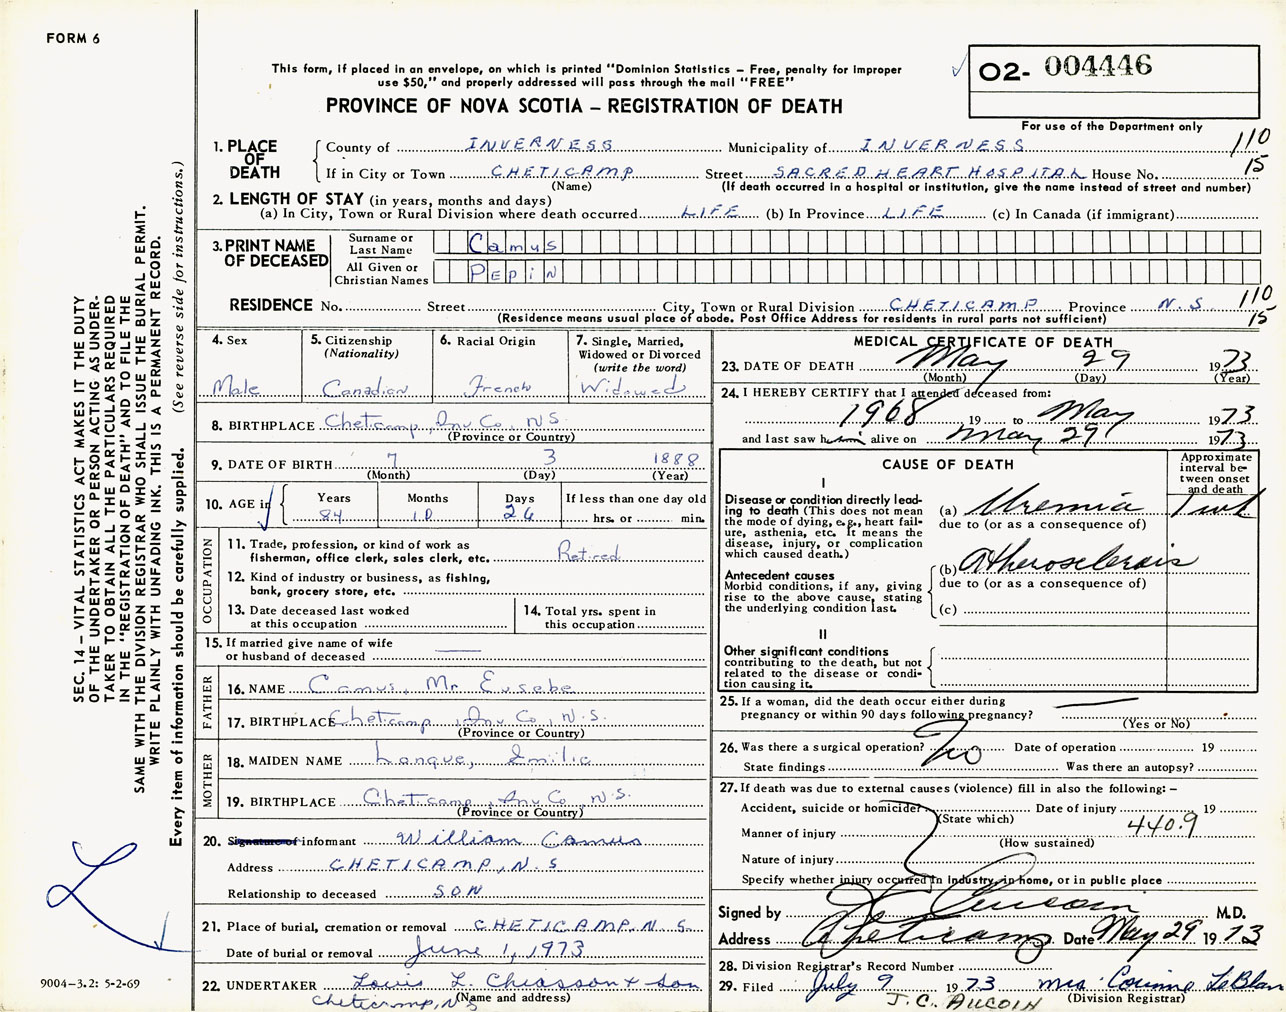 FORM 6
This form, if placed in an envelope, on which is printed "Dominion Statistics – Free, penalty for improper
use $50," and properly addressed will pass through the mail "FREE"
PROVINCE OF NOVA SCOTIA – REGISTRATION OF DEATH
O2- 004446
For use of the Department only
SEC. 14 – VITAL STATISTICS ACT MAKES IT THE DUTY
OF THE UNDERTAKER OR PERSON ACTING AS UNDER-
TAKER TO OBTAIN ALL THE PARTICULARS REQUIRED
IN THE "REGISTRATION OF DEATH" AND TO FILE THE
SAME WITH THE DIVISION REGISTRAR WHO SHALL ISSUE THE BURIAL PERMIT.
WRITE PLAINLY WITH UNFADING INK. THIS IS A PERMANENT RECORD.
Every item of information should be carefully supplied. (See reverse side for instructions.)
1. PLACE OF DEATH
County of INVERNESS Municipality of INVERNESS 110
If in City or Town CHETICAMP Street SACRED HEART HOSPITAL House No. 15
(Name) (If death occurred in a hospital or institution, give the name instead of street and number)
2. LENGTH OF STAY (in years, months and days)
(a) In City, Town or Rural Division where death occurred LIFE (b) In Province LIFE (c) In Canada (if immigrant)
3. PRINT NAME OF DECEASED
Surname or Last Name Camus
All Given or Christian Names PEPIN
RESIDENCE No. Street City, Town or Rural Division CHETICAMP Province N.S. 110
(Residence means usual place of abode. Post Office Address for residents in rural parts not sufficient) 15
4. Sex
Male
5. Citizenship
(Nationality)
Canadian
6. Racial Origin
French
7. Single, Married,
Widowed or Divorced
(write the word)
Widowed
8. BIRTHPLACE Cheticamp, Inv Co, N.S.
(Province or Country)
9. DATE OF BIRTH 7 3 1888
(Month) (Day) (Year)
10. AGE in Years Months Days If less than one day old
84 10 26 hrs. or min.
OCCUPATION
11. Trade, profession, or kind of work as
fisherman, office clerk, sales clerk, etc. Retired
12. Kind of industry or business, as fishing,
bank, grocery store, etc.
13. Date deceased last worked
at this occupation
14. Total yrs. spent in
this occupation
15. If married give name of wife
or husband of deceased
FATHER
16. NAME Camus, Mr Eusebe
17. BIRTHPLACE Cheticamp, Inv Co, N.S.
(Province or Country)
MOTHER
18. MAIDEN NAME Emilie
19. BIRTHPLACE Cheticamp, Inv Co, N.S.
(Province or Country)
20. Signature of informant William Camus
Address CHETICAMP, N.S
Relationship to deceased SON
21. Place of burial, cremation or removal CHETICAMP, N.S.
Date of burial or removal June 1, 1973
22. UNDERTAKER Louis L. Chiasson + son
Cheticamp, N.S (Name and address)
9004–3.2: 5-2-69
MEDICAL CERTIFICATE OF DEATH
23. DATE OF DEATH May 29 1973
(Month) (Day) (Year)
24. I HEREBY CERTIFY that I attended deceased from:
1968 19 to May 1973
and last saw him alive on May 29 1973
CAUSE OF DEATH
Approximate
interval be-
tween onset
and death
I
Disease or condition directly lead-
ing to death (This does not mean
the mode of dying, e.g., heart fail-
ure, asthenia, etc. It means the
disease, injury, or complication
which caused death.)
(a) Uremia 1 wk
due to (or as a consequence of)
Antecedent causes
Morbid conditions, if any, giving
rise to the above cause, stating
the underlying condition last.
(b) Atherosclerosis
due to (or as a consequence of)
(c)
II
Other significant conditions
contributing to the death, but not
related to the disease or condi-
tion causing it.
25. If a woman, did the death occur either during
pregnancy or within 90 days following pregnancy?
(Yes or No)
26. Was there a surgical operation? No Date of operation 19
State findings Was there an autopsy?
27. If death was due to external causes (violence) fill in also the following: –
Accident, suicide or homicide? Date of injury 19
(State which) 440.9
Manner of injury
(How sustained)
Nature of injury
Specify whether injury occurred in Industry, in home, or in public place
Signed by Aucoin M.D.
Address Cheticamp Date May 29 1973
28. Division Registrar's Record Number
29. Filed July 9 1973 Mrs Corinne LeBlanc
J.C. AUCOIN (Division Registrar)